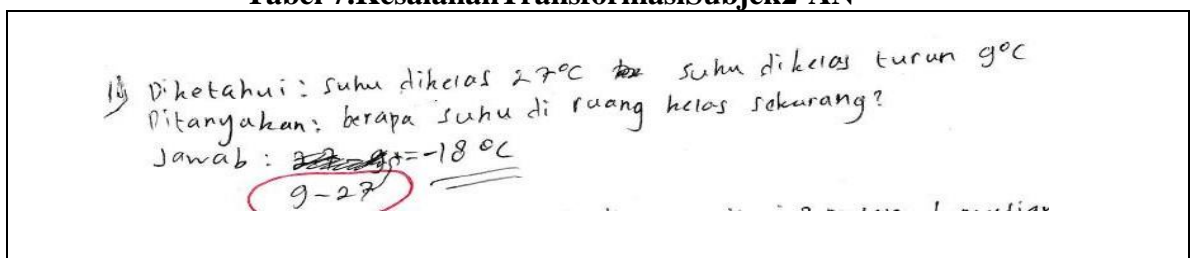 Tabel 7.KesalahanTransformasiSubjek2 AN
1) Diketahui : suhu dikelas 27°C suhu dikelas turun 9°C
Ditanyakan : berapa suhu di ruang kelas sekarang?
Jawab : = -18 °C
9-27